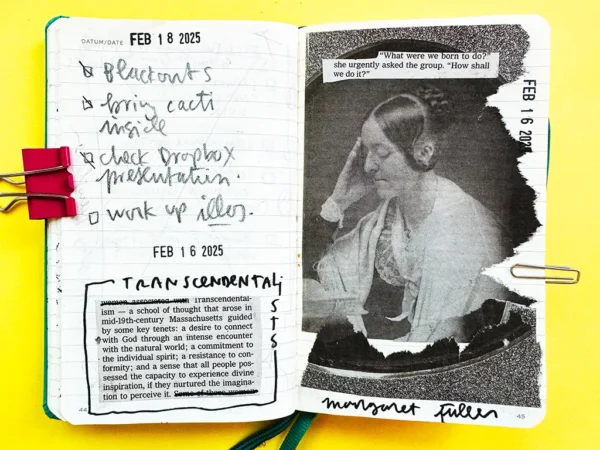 DATUM/DATE FEB 18 2025
Blackouts
bring cacti
inside
check Dropbox
presentation.
work up illos.
FEB 16 2025
TRANSCENDENTALISTS
women associated with Transcendental-
ism — a school of thought that arose in
mid-19th-century Massachusetts guided
by some key tenets: a desire to connect
with God through an intense encounter
with the natural world; a commitment to
the individual spirit; a resistance to con-
formity; and a sense that all people pos-
sessed the capacity to experience divine
inspiration, if they nurtured the imagina-
tion to perceive it. Some of these women
44
"What were we born to do?"
she urgently asked the group. "How shall
we do it?"
FEB 16 2025
margaret fuller
45